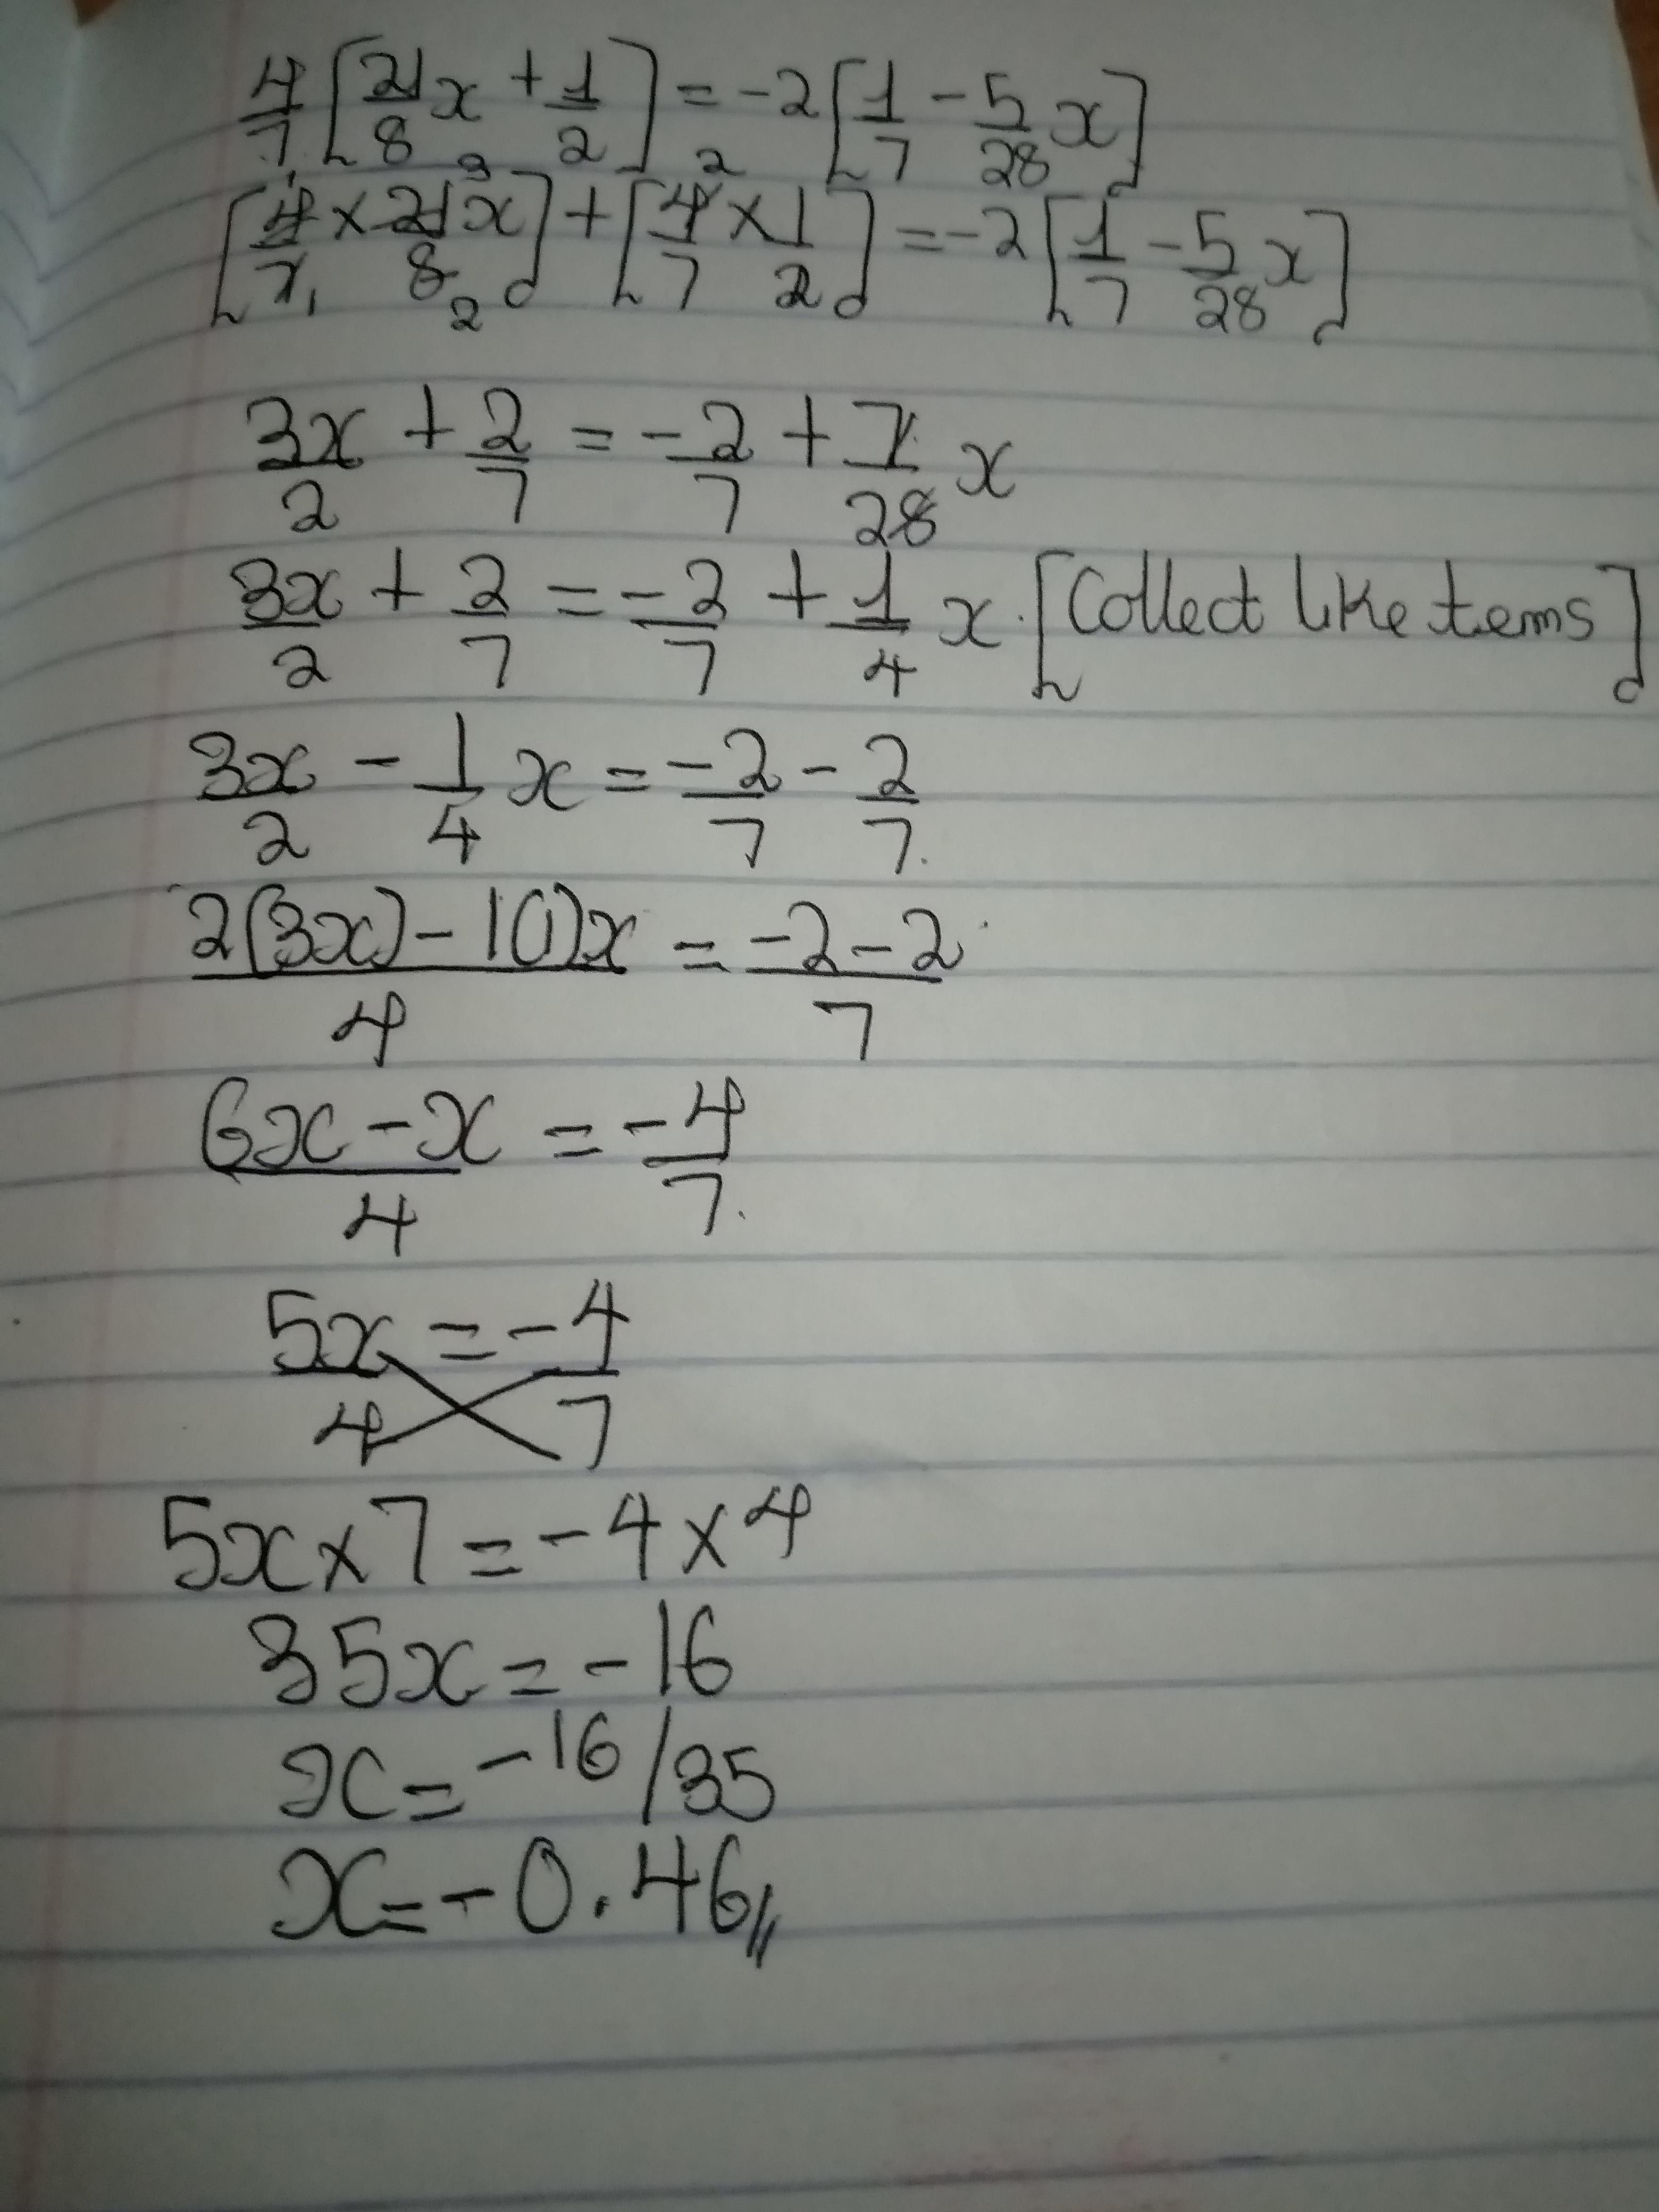 4/7 [21/8 x + 1/2] = -2 [1/7 - 5/28 x]
[4/7 × 21x/8] + [4/7 × 1/2] = -2 [1/7 - 5/28 x]
3x/2 + 2/7 = -2/7 + 7/28 x
3x/2 + 2/7 = -2/7 + 1/4 x. [Collect like tems]
3x/2 - 1/4 x = -2/7 - 2/7.
2(3x) - 1(1)x/4 = -2-2/7
6x-x/4 = -4/7.
5x/4 = -4/7
5x×7 = -4×4
35x = -16
x = -16/35
x = -0.46//